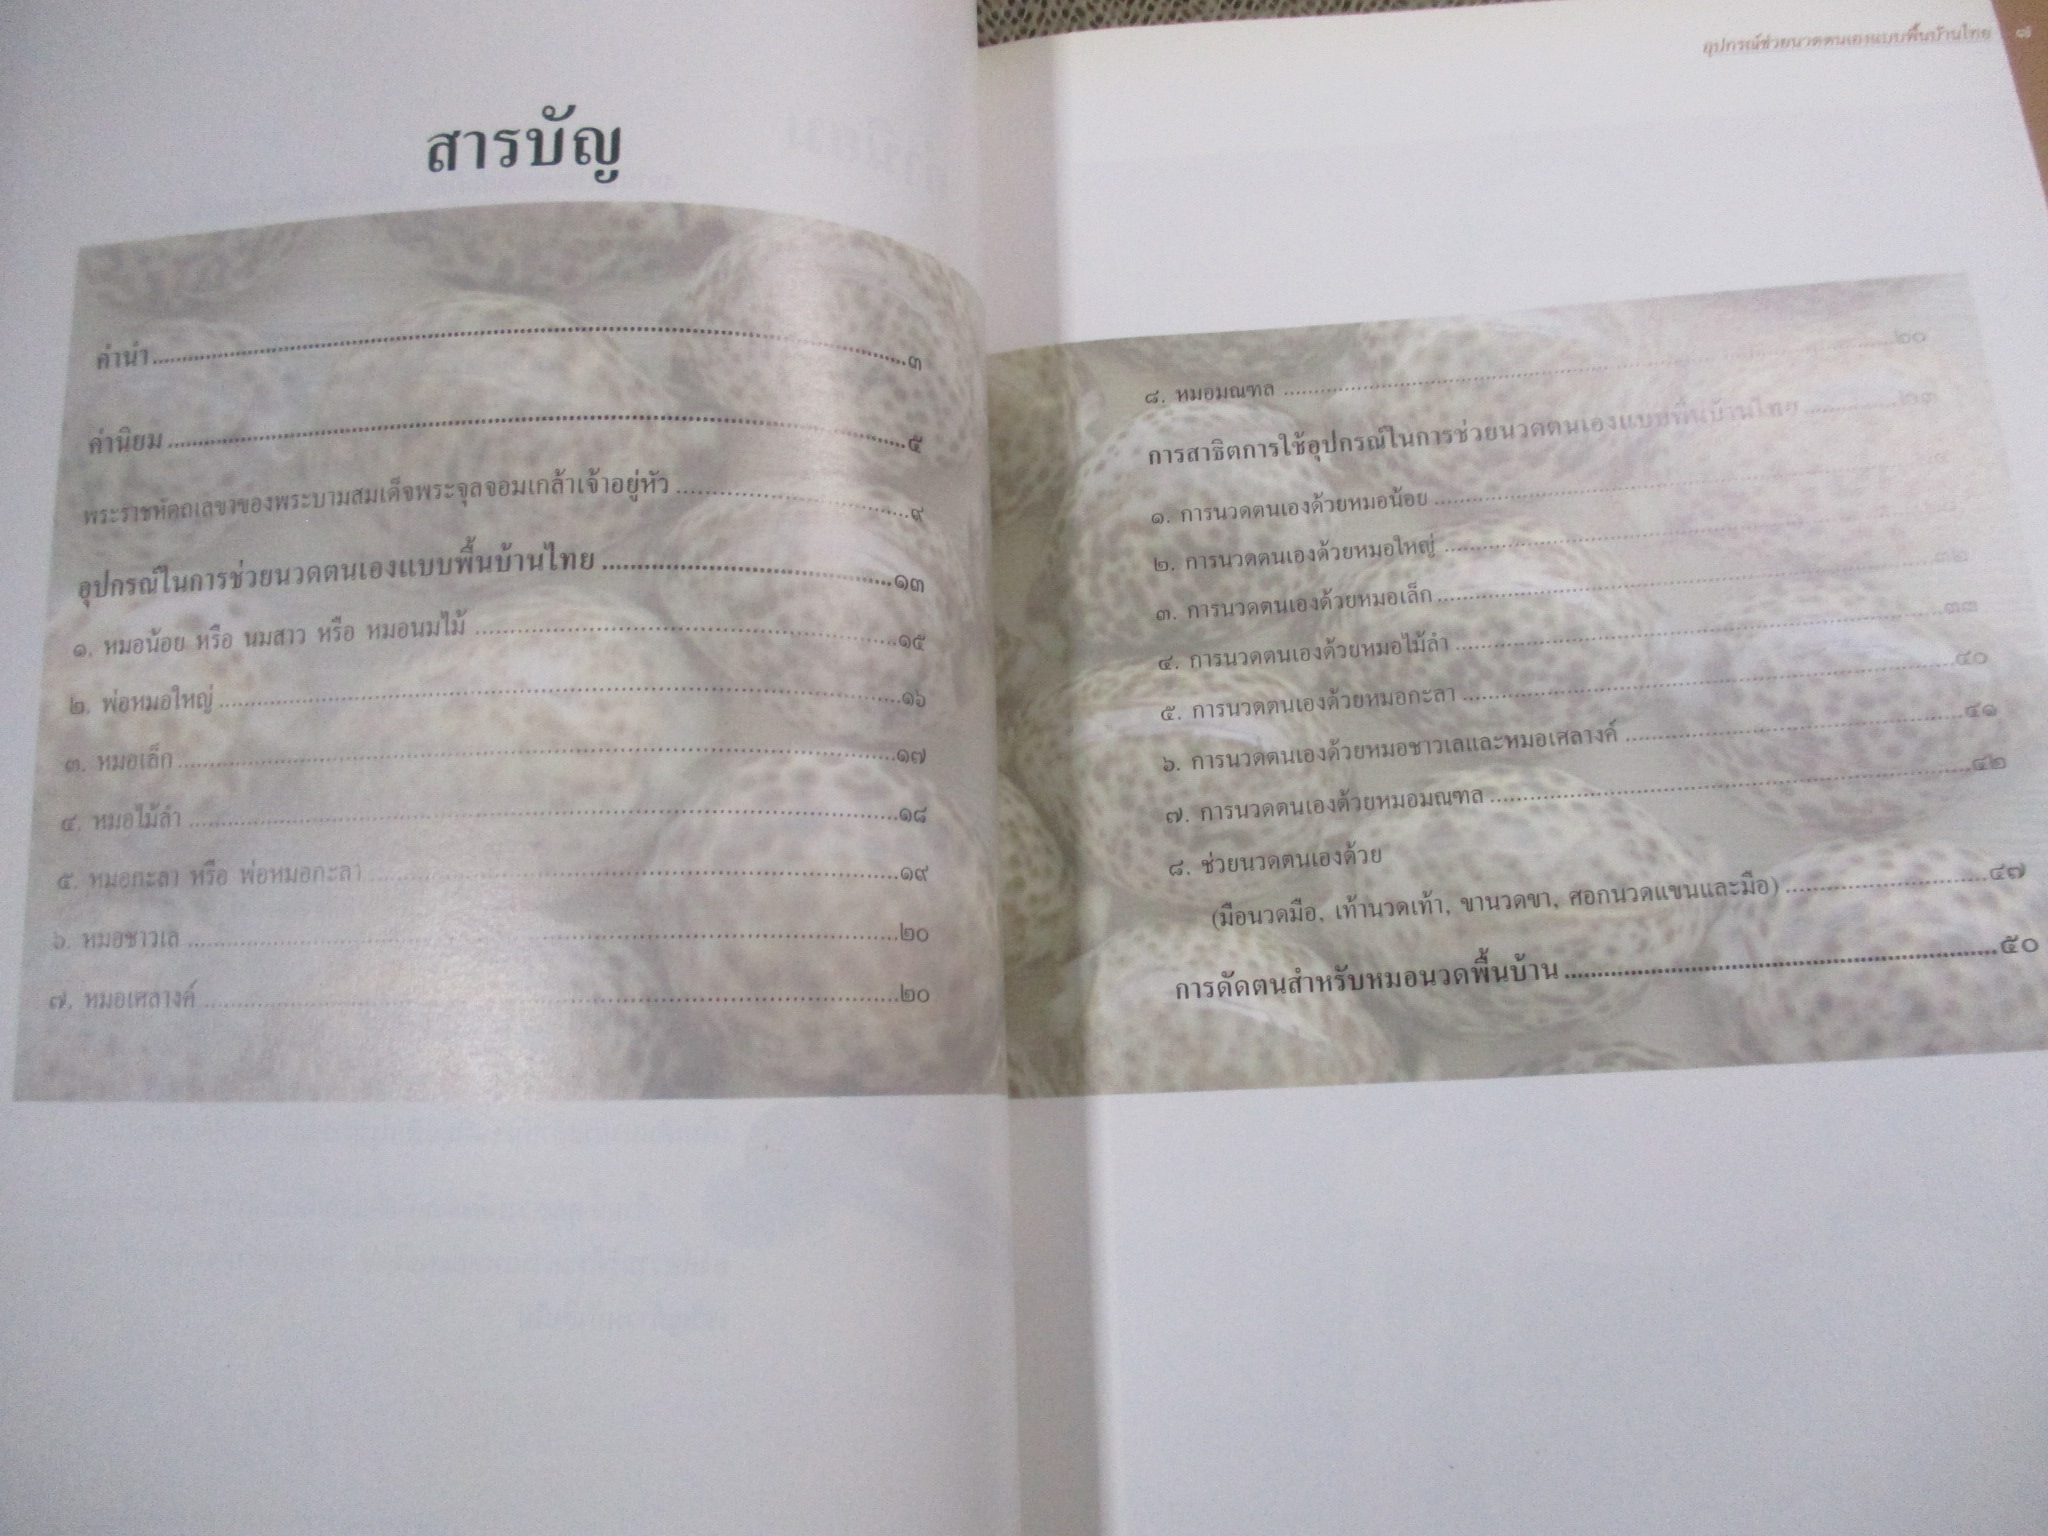 สารบัญ
คำนำ....................๓
คำนิยม....................๕
พระราชหัตถเลขาของพระบามสมเด็จพระจุลจอมเกล้าเจ้าอยู่หัว....................๙
อุปกรณ์ในการช่วยนวดตนเองแบบพื้นบ้านไทย....................๑๓
๑. หมอน้อย หรือ นมสาว หรือ หมอนมไม้....................๑๕
๒. พ่อหมอใหญ่....................๑๖
๓. หมอเล็ก....................๑๗
๔. หมอไม้ลำ....................๑๘
๕. หมอกะลา หรือ พ่อหมอกะลา....................๑๙
๖. หมอชาวเล....................๒๐
๗. หมอเศลางค์....................๒๐
อุปกรณ์ช่วยนวดตนเองแบบพื้นบ้านไทย ๗
๘. หมอมณฑล....................๒๐
การสาธิตการใช้อุปกรณ์ในการช่วยนวดตนเองแบบพื้นบ้านไทย....................๒๓
๑. การนวดตนเองด้วยหมอน้อย....................
๒. การนวดตนเองด้วยหมอใหญ่....................
๓. การนวดตนเองด้วยหมอเล็ก....................๓๒
๔. การนวดตนเองด้วยหมอไม้ลำ....................๓๓
๕. การนวดตนเองด้วยหมอกะลา....................๔๐
๖. การนวดตนเองด้วยหมอชาวเลและหมอเศลางค์....................๔๑
๗. การนวดตนเองด้วยหมอมณฑล....................๔๒
๘. ช่วยนวดตนเองด้วย
(มือนวดมือ, เท้านวดเท้า, ขานวดขา, ศอกนวดแขนและมือ)....................๔๗
การดัดตนสำหรับหมอนวดพื้นบ้าน....................๕๐